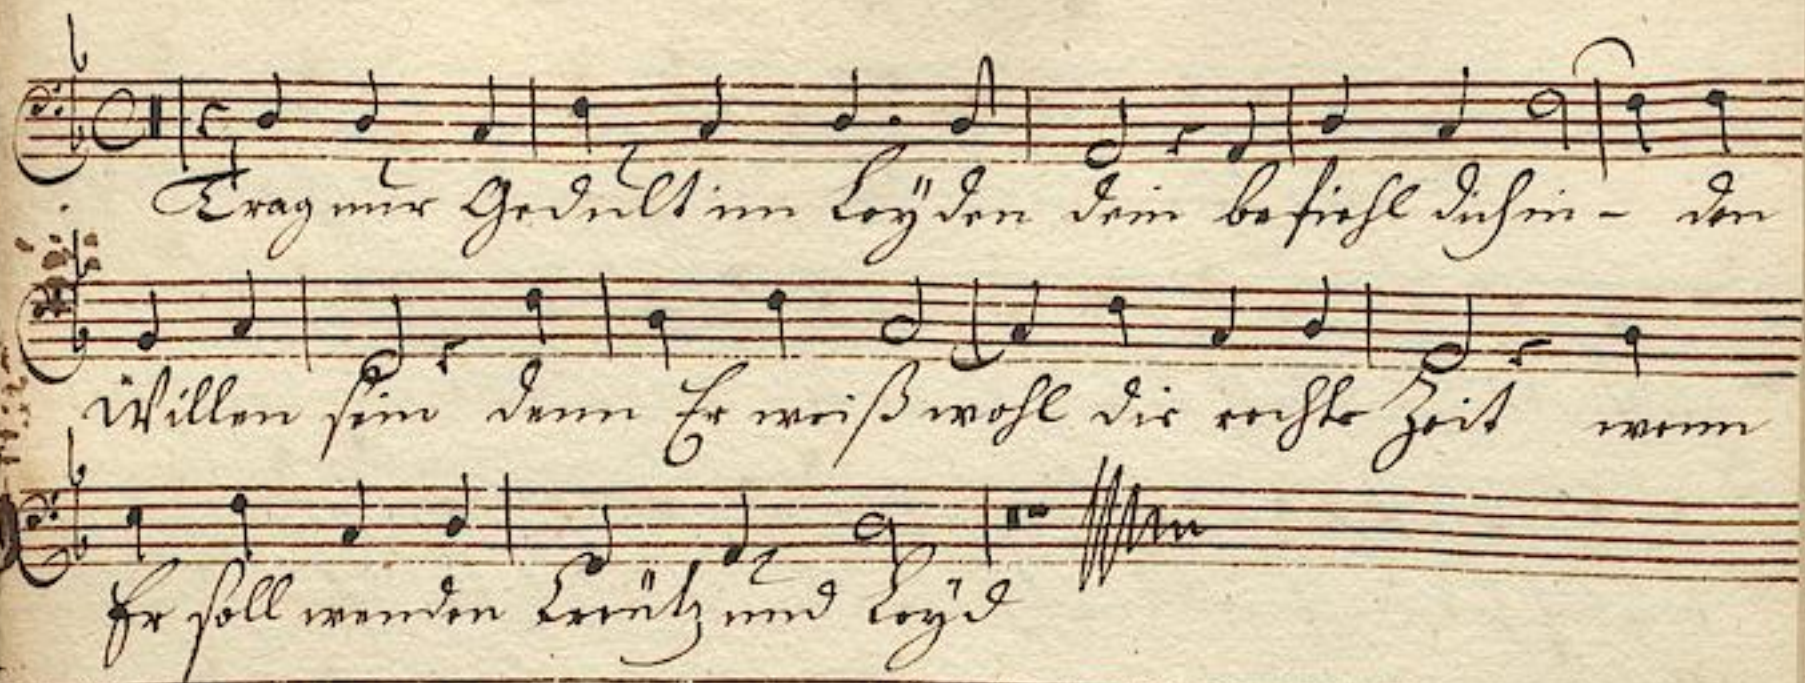 Trag nur Gedult im Leÿden dein befiehl dich in - den
Willen sein denn Er weiß wohl die rechte Zeit wenn
Er soll wenden Creütz und Leÿd